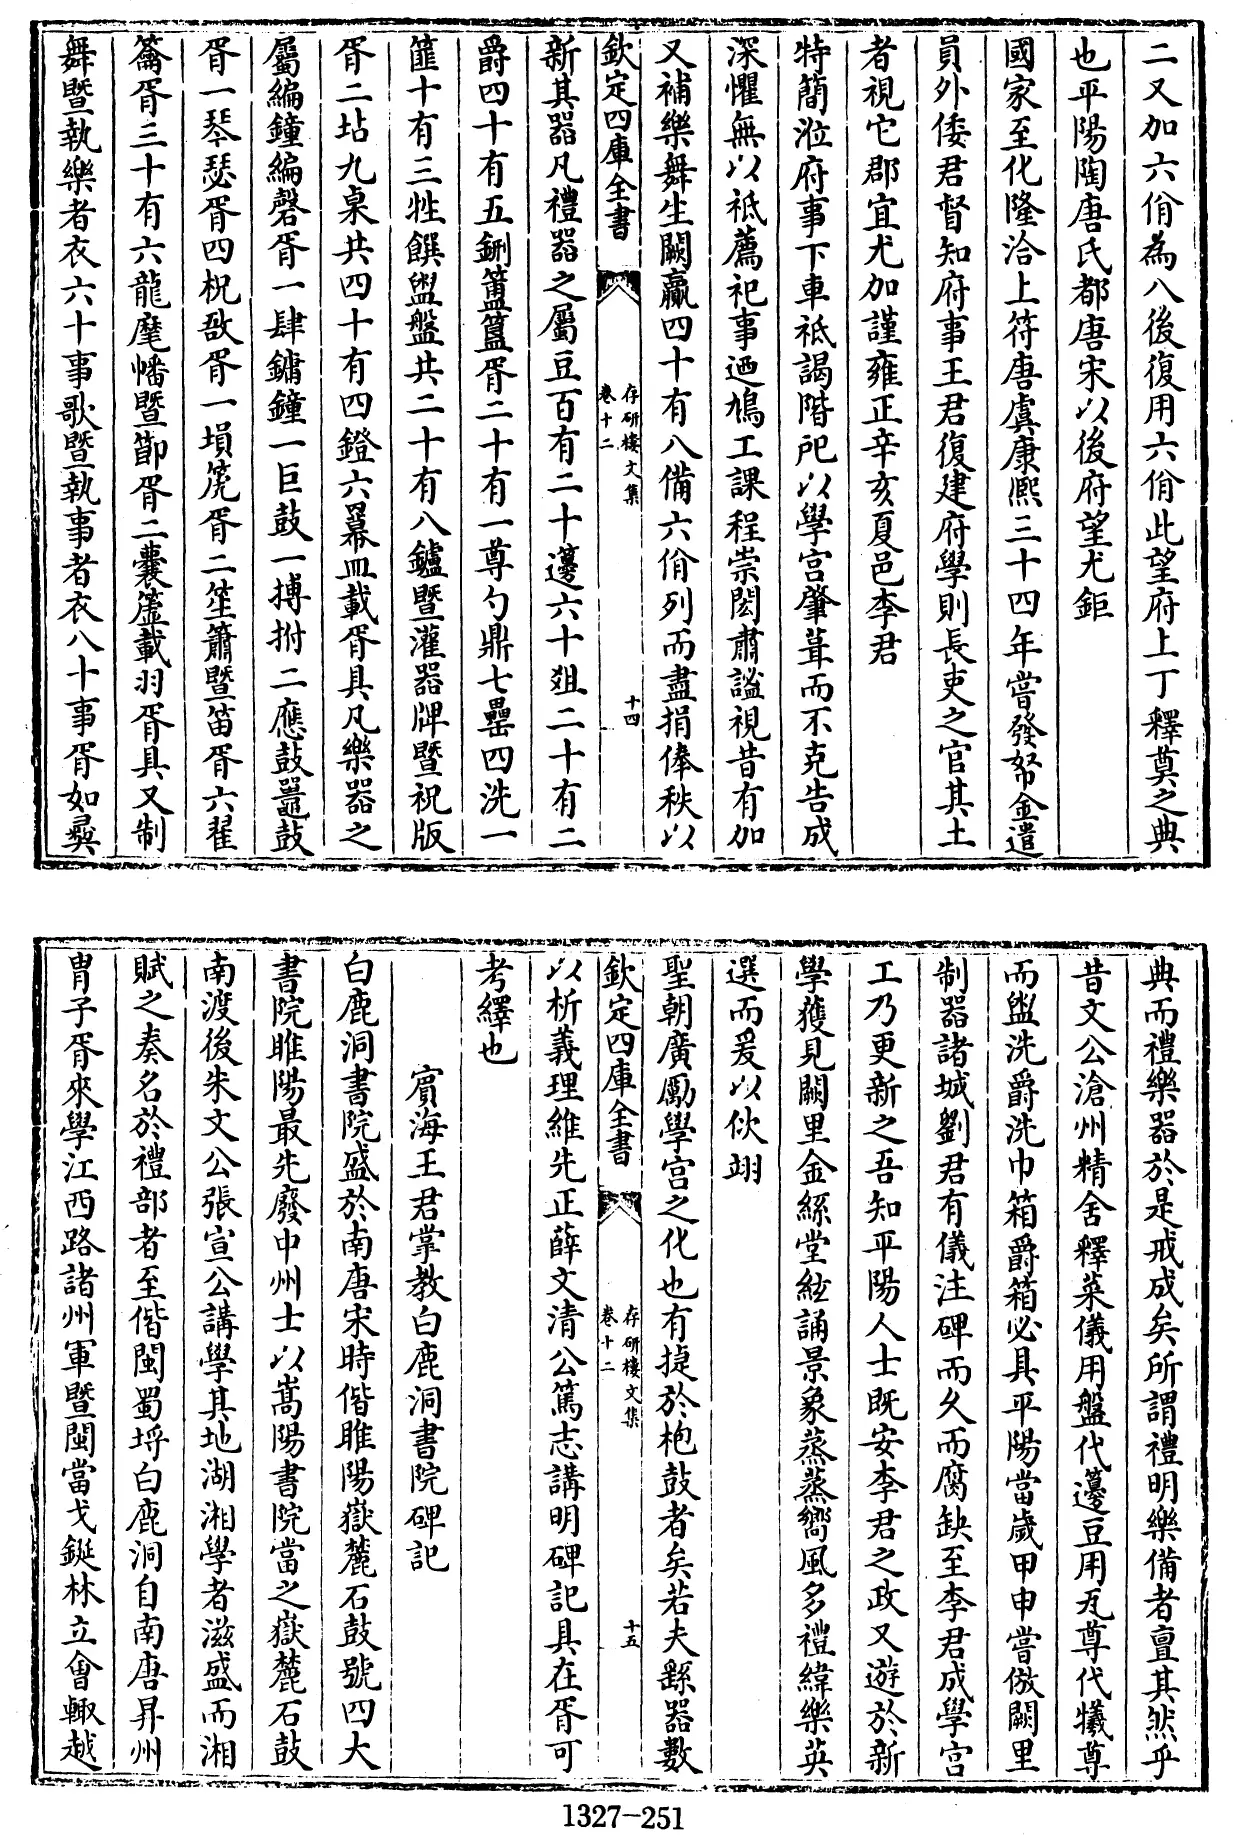 二又加六佾為八後復用六佾此望府上丁釋奠之典
也平陽陶唐氏都唐宋以後府望尤鉅
國家至化隆洽上符唐虞康熙三十四年嘗發帑金遣
員外倭君督知府事王君復建府學則長吏之官其土
者視它郡宜尤加謹雍正辛亥夏邑李君
特簡涖府事下車祗謁階戺以學宫肇葺而不克告成
深懼無以祗薦祀事迺鳩工課程崇閎肅謐視昔有加
又補樂舞生闕贏四十有八備六佾列而盡捐俸秩以
欽定四庫全書
存研樓文集
卷十二
十四
新其器凡禮器之屬豆百有二十籩六十俎二十有二
爵四十有五鉶簠簋胥二十有一尊勺鼎七罍四洗一
篚十有三牲饌盥盤共二十有八鑪暨灌器牌暨祝版
胥二坫九桌共四十有四鐙六幕血載胥具凡樂器之
屬編鐘編磬胥一肆鏞鐘一巨鼓一搏拊二應鼓鼉鼓
胥一琴瑟胥四柷敔胥一塤箎胥二笙簫暨笛胥六翟
籥胥三十有六龍麾幡暨節胥二囊簴載羽胥具又制
舞暨執樂者衣六十事歌暨執事者衣八十事胥如彝
典而禮樂器於是戒成矣所謂禮明樂備者亶其然乎
昔文公滄州精舍釋菜儀用盤代籩豆用瓦尊代犧尊
而盥洗爵洗巾箱爵箱必具平陽當歲甲申嘗倣闕里
制器諸城劉君有儀注碑而久而腐缺至李君成學宫
工乃更新之吾知平陽人士既安李君之政又遊於新
學獲見闕里金絲堂絃誦景象蒸蒸嚮風多禮緯樂英
選而爰以佽翊
聖朝廣勵學宫之化也有捷於枹鼓者矣若夫繇器數
欽定四庫全書
存研樓文集
卷十二
十五
以析義理維先正薛文清公篤志講明碑記具在胥可
考繹也
賔海王君掌教白鹿洞書院碑記
白鹿洞書院盛於南唐宋時偕睢陽嶽麓石鼓號四大
書院睢陽最先廢中州士以嵩陽書院當之嶽麓石鼓
南渡後朱文公張宣公講學其地湖湘學者滋盛而湘
賦之奏名於禮部者至偕閩蜀埒白鹿洞自南唐昇州
胄子胥來學江西路諸州軍暨閩當戈鋋林立會輙越
1327-251